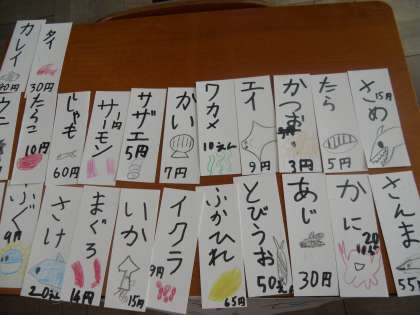 カレイ
90円
タイ
30円
ウニ
たらこ
10円
じゃも
60円
サーモン
1円
サザエ
5円
かい
7円
ワカメ
10えん
エイ
9円
かつお
3円
たら
5円
さめ
15円
ふぐ
9円
さけ
20えん
まぐろ
14円
いか
15円
イクラ
9円
ふかひれ
65円
とびうお
50えん
あじ
30円
かに
20
さんま
55円